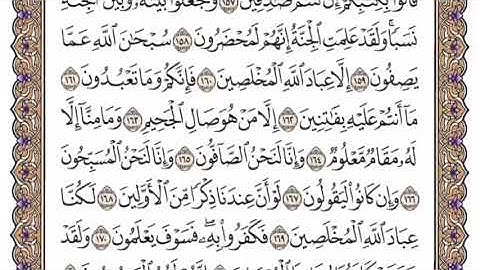 فَأْتُوا۟ بِكِتَٰبِكُمْ إِن كُنتُمْ صَٰدِقِينَ ١٥٧ وَجَعَلُوا۟ بَيْنَهُۥ وَبَيْنَ ٱلْجِنَّةِ
نَسَبًا ۚ وَلَقَدْ عَلِمَتِ ٱلْجِنَّةُ إِنَّهُمْ لَمُحْضَرُونَ ١٥٨ سُبْحَٰنَ ٱللَّهِ عَمَّا
يَصِفُونَ ١٥٩ إِلَّا عِبَادَ ٱللَّهِ ٱلْمُخْلَصِينَ ١٦٠ فَإِنَّكُمْ وَمَا تَعْبُدُونَ ١٦١
مَآ أَنتُمْ عَلَيْهِ بِفَٰتِنِينَ ١٦٢ إِلَّا مَنْ هُوَ صَالِ ٱلْجَحِيمِ ١٦٣ وَمَا مِنَّآ إِلَّا
لَهُۥ مَقَامٌ مَّعْلُومٌ ١٦٤ وَإِنَّا لَنَحْنُ ٱلصَّآفُّونَ ١٦٥ وَإِنَّا لَنَحْنُ ٱلْمُسَبِّحُونَ
١٦٦ وَإِن كَانُوا۟ لَيَقُولُونَ ١٦٧ لَوْ أَنَّ عِندَنَا ذِكْرًا مِّنَ ٱلْأَوَّلِينَ ١٦٨ لَكُنَّا
عِبَادَ ٱللَّهِ ٱلْمُخْلَصِينَ ١٦٩ فَكَفَرُوا۟ بِهِۦ ۖ فَسَوْفَ يَعْلَمُونَ ١٧٠ وَلَقَدْ